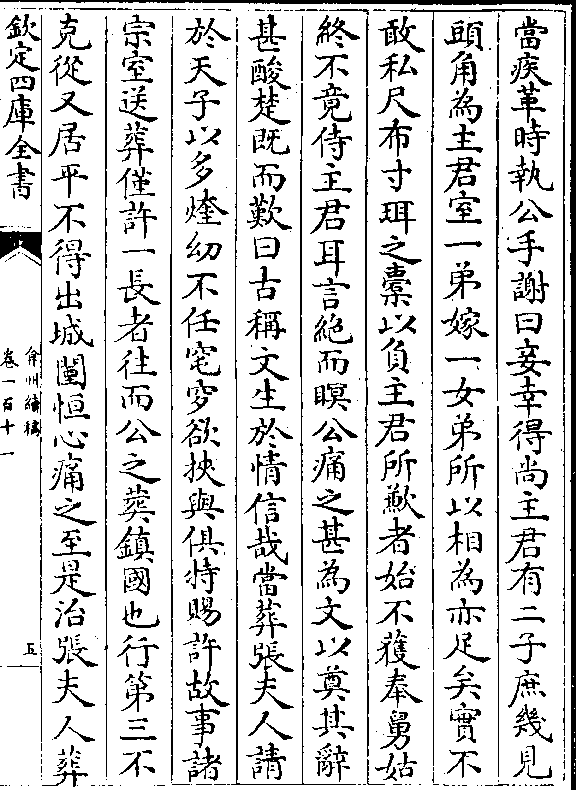 當疾革時執公手謝曰妾幸得尚主君有二子庶幾見
頭角為主君室一弟嫁一女弟所以相為亦足矣實不
敢私尺布寸珥之橐以負主君所歉者始不獲奉舅姑
終不竟侍主君耳言絶而瞑公痛之甚為文以奠其辭
甚酸楚既而歎曰古稱文生於情信哉當葬張夫人請
於天子以多煃幼不任窀穸欲挾與俱特賜許故事諸
宗室送葬僅許一長者往而公之葬鎮國也行第三不
克從又居平不得出城闉恒心痛之至是治張夫人葬
欽定四庫全書
弇州續稿
卷一百十一
五